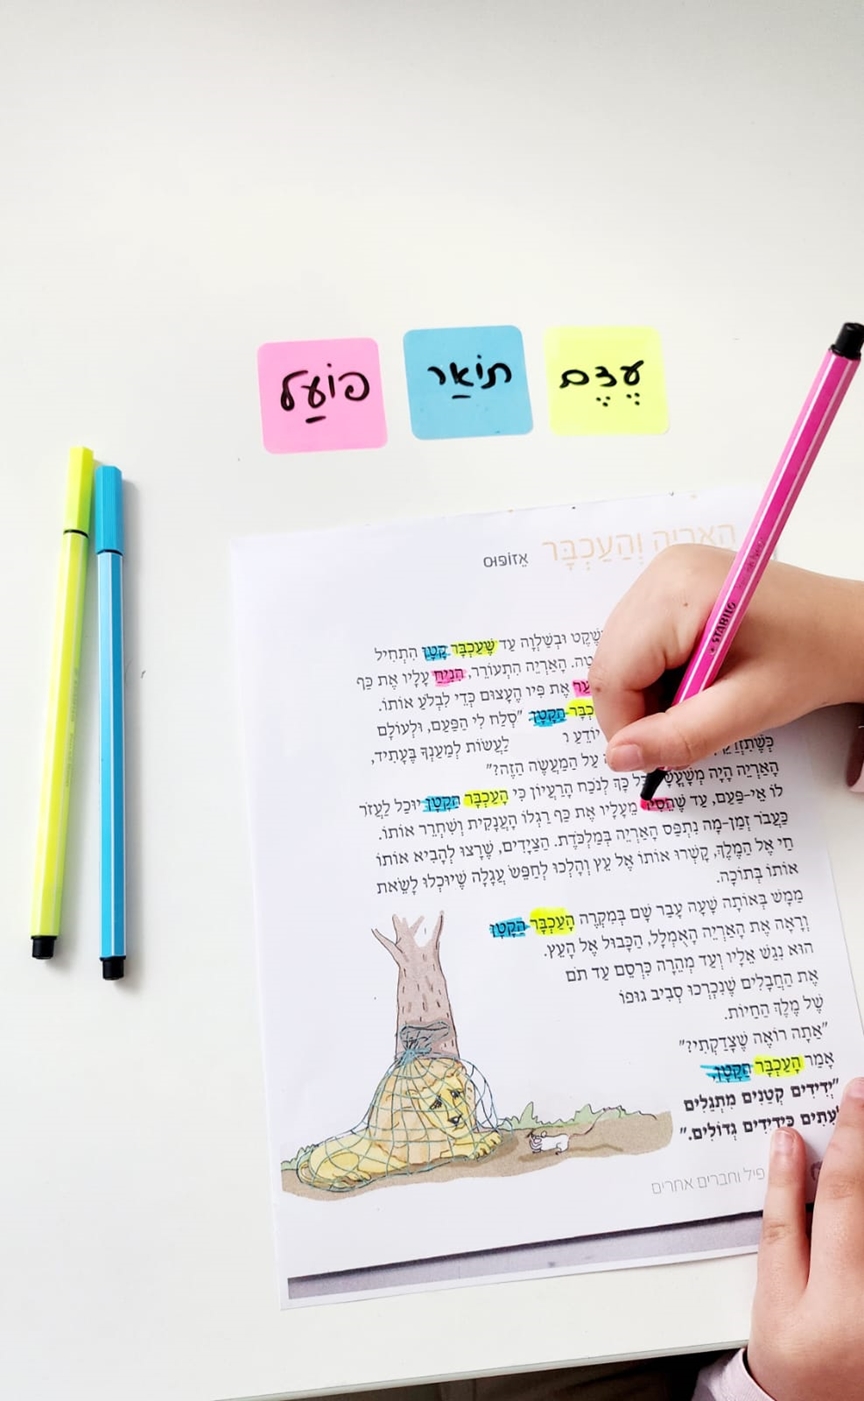 עֶצֶם
תּוֹאַר
פּוֹעַל
הָאַרְיֵה וְהָעַכְבָּר אֵזוֹפּוּס
וּבְשַׁלְוָה עַד שֶׁעַכְבָּר קָטָן הִתְחִיל
הָאַרְיֵה הִתְעוֹרֵר, הִנִּיחַ עָלָיו אֶת כַּף
אֶת פִּיו הֶעָצוּם כְּדֵי לִבְלֹעַ אוֹתוֹ.
הַקָּטָן, "סְלַח לִי הַפַּעַם, וּלְעוֹלָם
יוֹדֵעַ לַעֲשׂוֹת לְמַעַנְךָ בֶּעָתִיד,
עַל הַמַּעֲשֶׂה הַזֶּה?"
הָאַרְיֵה הָיָה כָּל כָּךְ לְנֹכַח הָרַעְיוֹן כִּי הָעַכְבָּר הַקָּטָן יוּכַל לַעֲזֹר
לוֹ אֵי-פַּעַם, עַד שֶׁהֵסִיר מֵעָלָיו אֶת כַּף רַגְלוֹ הָעֲנָקִית וְשִׁחְרֵר אוֹתוֹ.
כַּעֲבֹר זְמַן-מָה נִתְפַּס הָאַרְיֵה בְּמַלְכֹּדֶת. הַצַּיָּדִים, שֶׁרָצוּ לְהָבִיא אוֹתוֹ
חַי אֶל הַמֶּלֶךְ, קָשְׁרוּ אוֹתוֹ אֶל עֵץ וְהָלְכוּ לְחַפֵּשׂ עֲגָלָה שֶׁיּוּכְלוּ לָשֵׂאת
אוֹתוֹ בְּתוֹכָהּ.
מַמָּשׁ בְּאוֹתָהּ שָׁעָה עָבַר שָׁם בְּמִקְרֶה הָעַכְבָּר הַקָּטָן
וְרָאָה אֶת הָאַרְיֵה הָאֻמְלָל, הַכָּבוּל אֶל הָעֵץ.
הוּא נִגַּשׁ אֵלָיו וְעַד מְהֵרָה כִּרְסֵם עַד תֹּם
אֶת הַחֲבָלִים שֶׁנִּכְרְכוּ סְבִיב גּוּפוֹ
שֶׁל מֶלֶךְ הַחַיּוֹת.
"אַתָּה רוֹאֶה שֶׁצָּדַקְתִּי?"
אָמַר הָעַכְבָּר הַקָּטָן,
"יְדִידִים קְטַנִּים מִתְגַּלִּים
לְעִתִּים כִּידִידִים גְּדוֹלִים."
פיל וחברים אחרים
STABILO